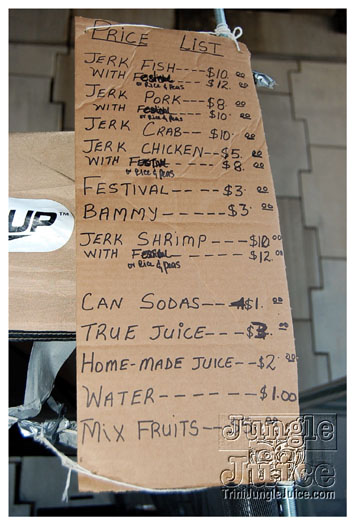 PRICE LIST
JERK FISH---$10.00
WITH Festival---$12.00
or Rice & Peas
JERK PORK--$8.00
WITH Festival---$10.00
or Rice & Peas
JERK CRAB--$10.00
JERK CHICKEN--$5.00
WITH FESTIVAL---$8.00
or Rice & Peas
FESTIVAL---$3.00
BAMMY-----$3.00
JERK SHRIMP----$10.00
WITH Festival---$12.00
or Rice & Peas
UP™
CAN SODAS---$1.00
TRUE JUICE---$3.00
HOME-MADE JUICE--$2.00
WATER-----$1.00
MIX FRUITS
Jungle
Juice
TriniJungleJuice.com